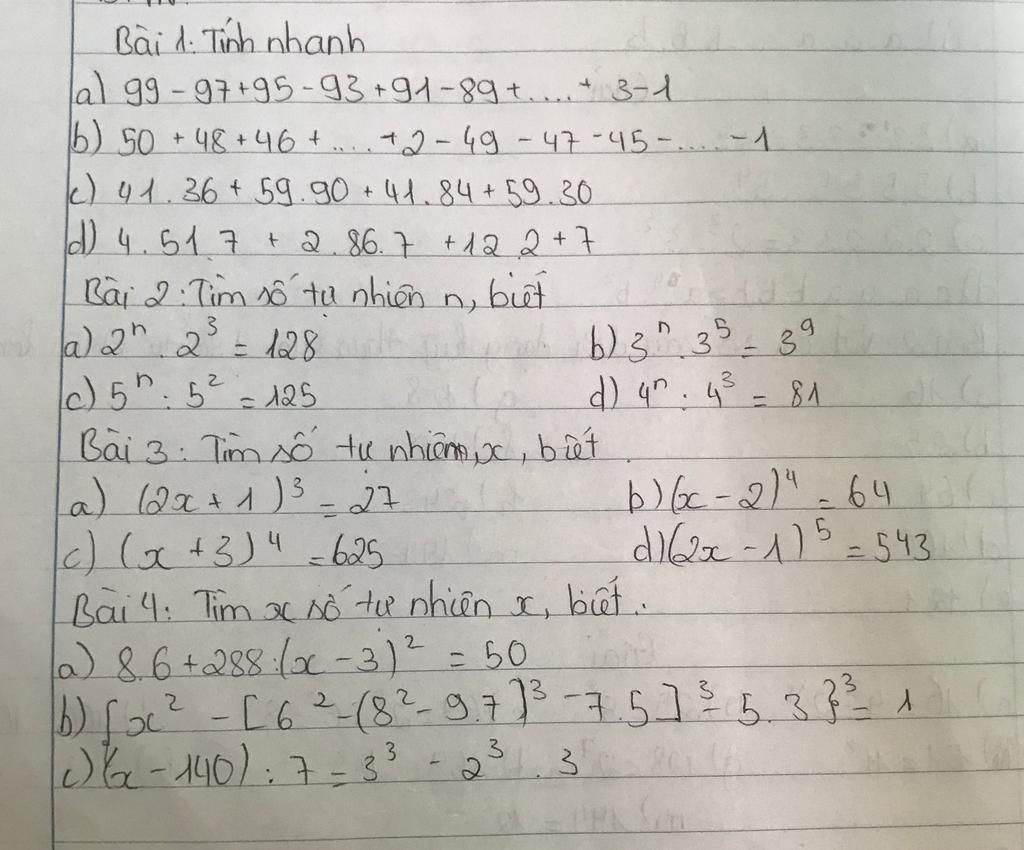 Bài 1: Tính nhanh
a) 99 - 97 + 95 - 93 + 91 - 89 + .... + 3 - 1
b) 50 + 48 + 46 + .... + 2 - 49 - 47 - 45 - .... - 1
c) 41 . 36 + 59 . 90 + 41 . 84 + 59 . 30
d) 4 . 51 . 7 + 2 . 86 . 7 + 12 . 2 + 7
Bài 2: Tìm số tự nhiên n, biết
a) 2ⁿ . 2³ = 128 b) 3ⁿ . 3⁵ = 3⁹
c) 5ⁿ : 5² = 125 d) 4ⁿ : 4³ = 81
Bài 3: Tìm số tự nhiên, x, biết
a) (2x + 1)³ = 27 b) (x - 2)⁴ = 64
c) (x + 3)⁴ = 625 d) (2x - 1)⁵ = 543
Bài 4: Tìm x số tự nhiên x, biết.
a) 8.6 + 288 : (x - 3)² = 50
b) {x² - [6² - (8² - 9.7]³ - 7.5]³ - 5.3}³ = 1
c) (x - 140) : 7 = 3³ - 2³ . 3